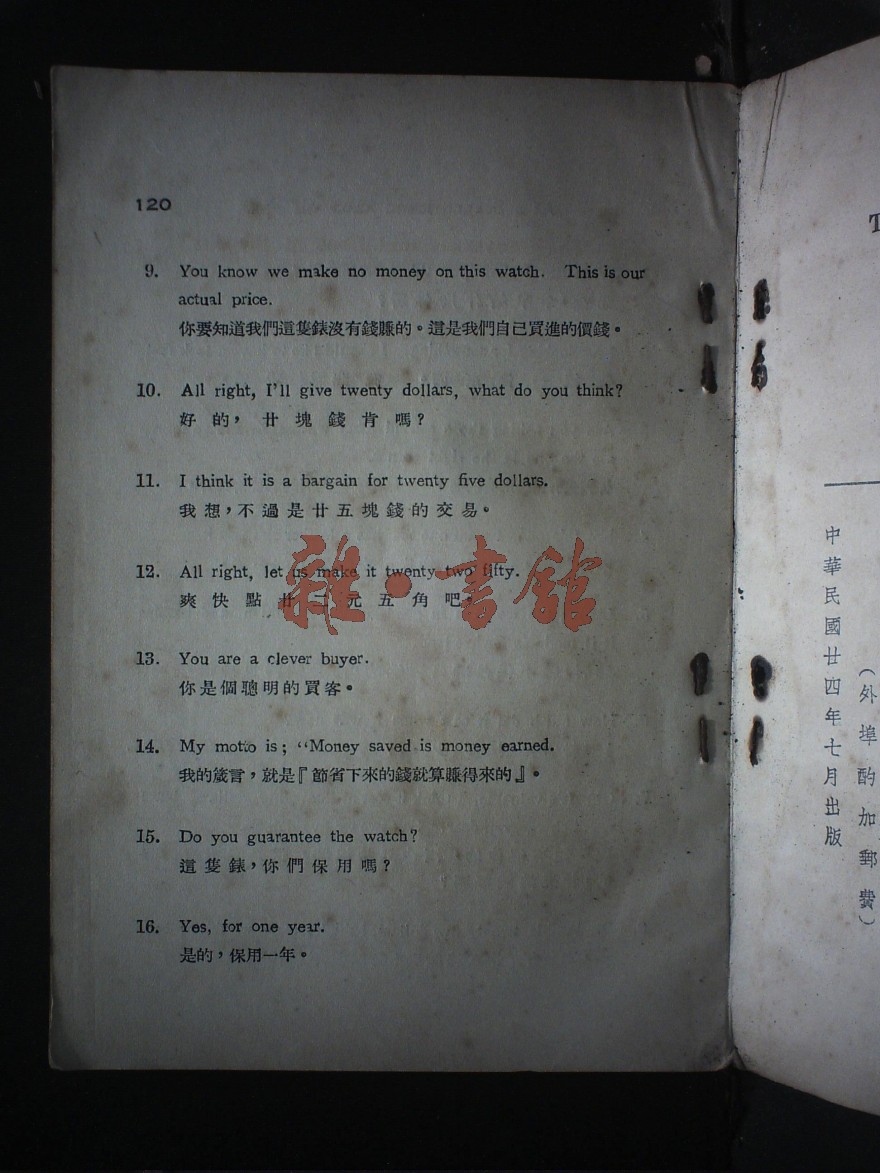 120
9. You know we make no money on this watch. This is our
actual price.
你要知道我們這隻錶沒有錢賺的。這是我們自已買進的價錢。
10. All right, I'll give twenty dollars, what do you think?
好的，廿塊錢肯嗎？
11. I think it is a bargain for twenty five dollars.
我想，不過是廿五塊錢的交易。
12. All right, let us make it twenty two fifty.
爽快點廿二元五角吧。
13. You are a clever buyer.
你是個聰明的買客。
14. My motto is; “Money saved is money earned.
我的箴言，就是『節省下來的錢就算賺得來的』。
15. Do you guarantee the watch?
這隻錶，你們保用嗎？
16. Yes, for one year.
是的，保用一年。
雜·書館
T
（外埠酌加郵費）
中華民國廿四年七月出版